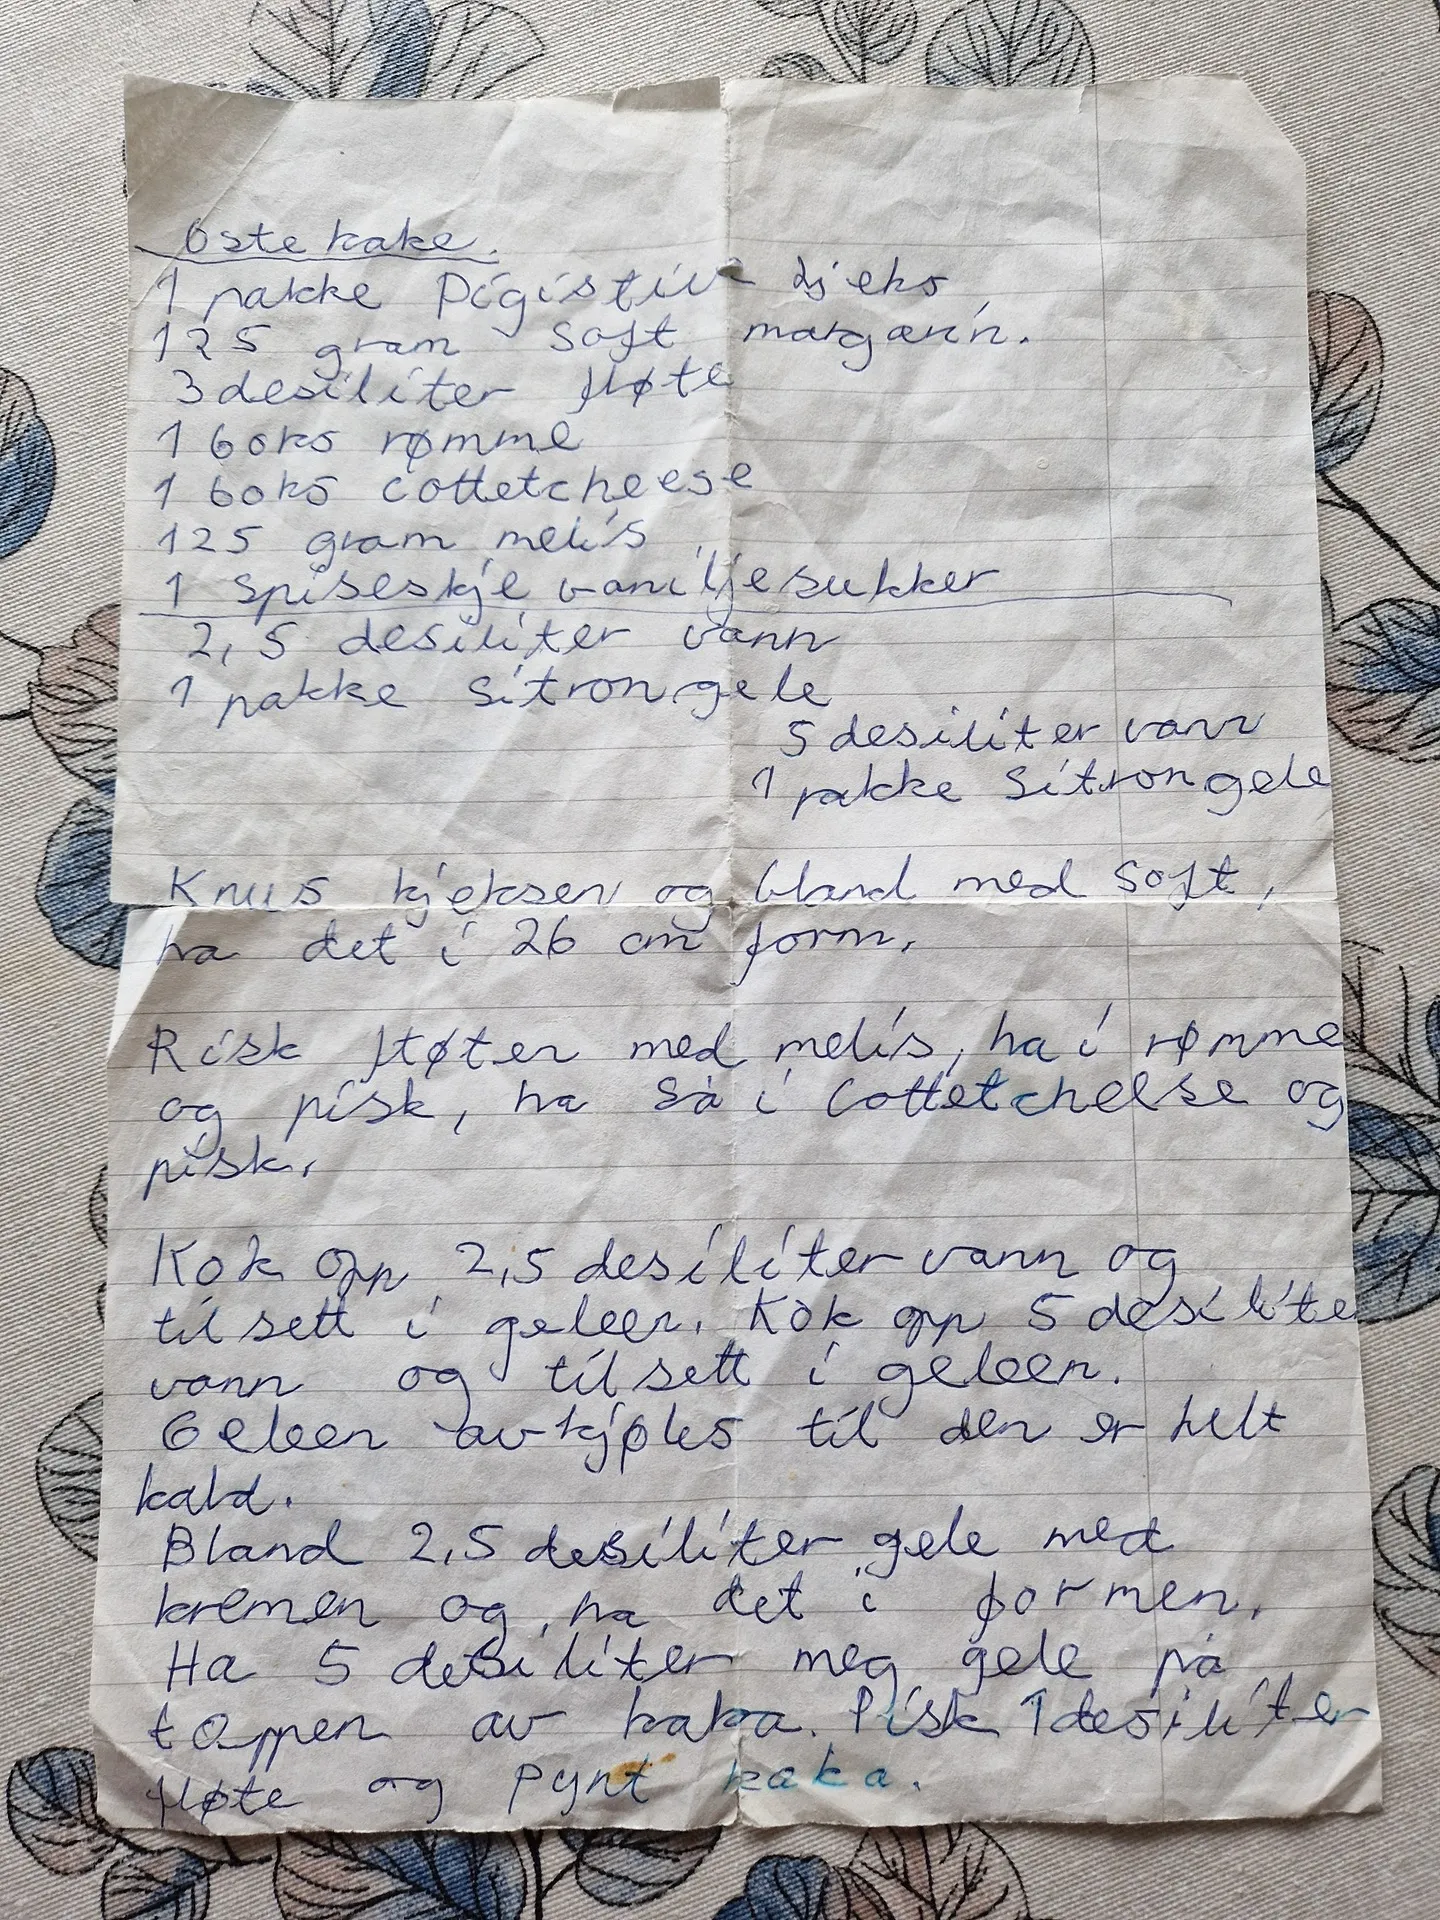 Ostekake.
1 pakke Pigistiv kjeks
125 gram Soft margarin.
3 desiliter fløte
1 boks rømme
1 boks cottetcheese
125 gram melis
1 spiseskje vaniljesukker
2,5 desiliter vann
1 pakke sitrongele
5 desiliter vann
1 pakke Sitrongele
Knus kjeksen og bland med Soft,
ha det i 26 cm form.
Pisk fløten med melis, ha i rømme
og pisk, ha så i Cottetcheese og
pisk.
Kok opp 2,5 desiliter vann og
tilsett i geleen. Kok opp 5 desiliter
vann og tilsett i geleen.
Geleen avkjøles til den er helt
kald.
Bland 2,5 desiliter gele med
kremen og ha det i formen.
Ha 5 desiliter meg gele på
toppen av kaka. Pisk 1 desiliter
fløte og pynt kaka.